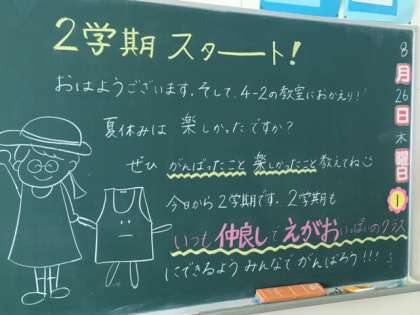 2学期 スタート!
おはようございます。そして、4-2の教室におかえり!
夏休みは 楽しかったですか?
ぜひ がんばったこと 楽しかったこと教えてね
今日から2学期です。2学期も
いつも仲良しでえがおいっぱいのクラス
にできるよう みんなで がんばろう!!!
8月26日木曜日
1